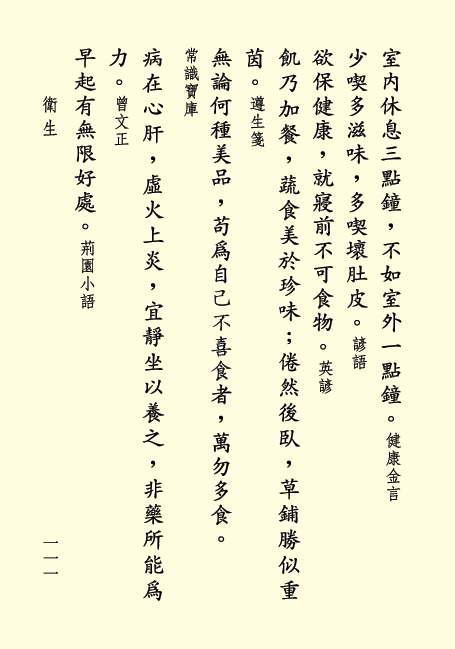 室內休息三點鐘，不如室外一點鐘。健康金言
少喫多滋味，多喫壞肚皮。諺語
欲保健康，就寢前不可食物。英諺
飢乃加餐，蔬食美於珍味；倦然後臥，草鋪勝似重
茵。遵生箋
無論何種美品，苟爲自己不喜食者，萬勿多食。
常識寶庫
病在心肝，虛火上炎，宜靜坐以養之，非藥所能爲
力。曾文正
早起有無限好處。荊園小語
衛生
一一一